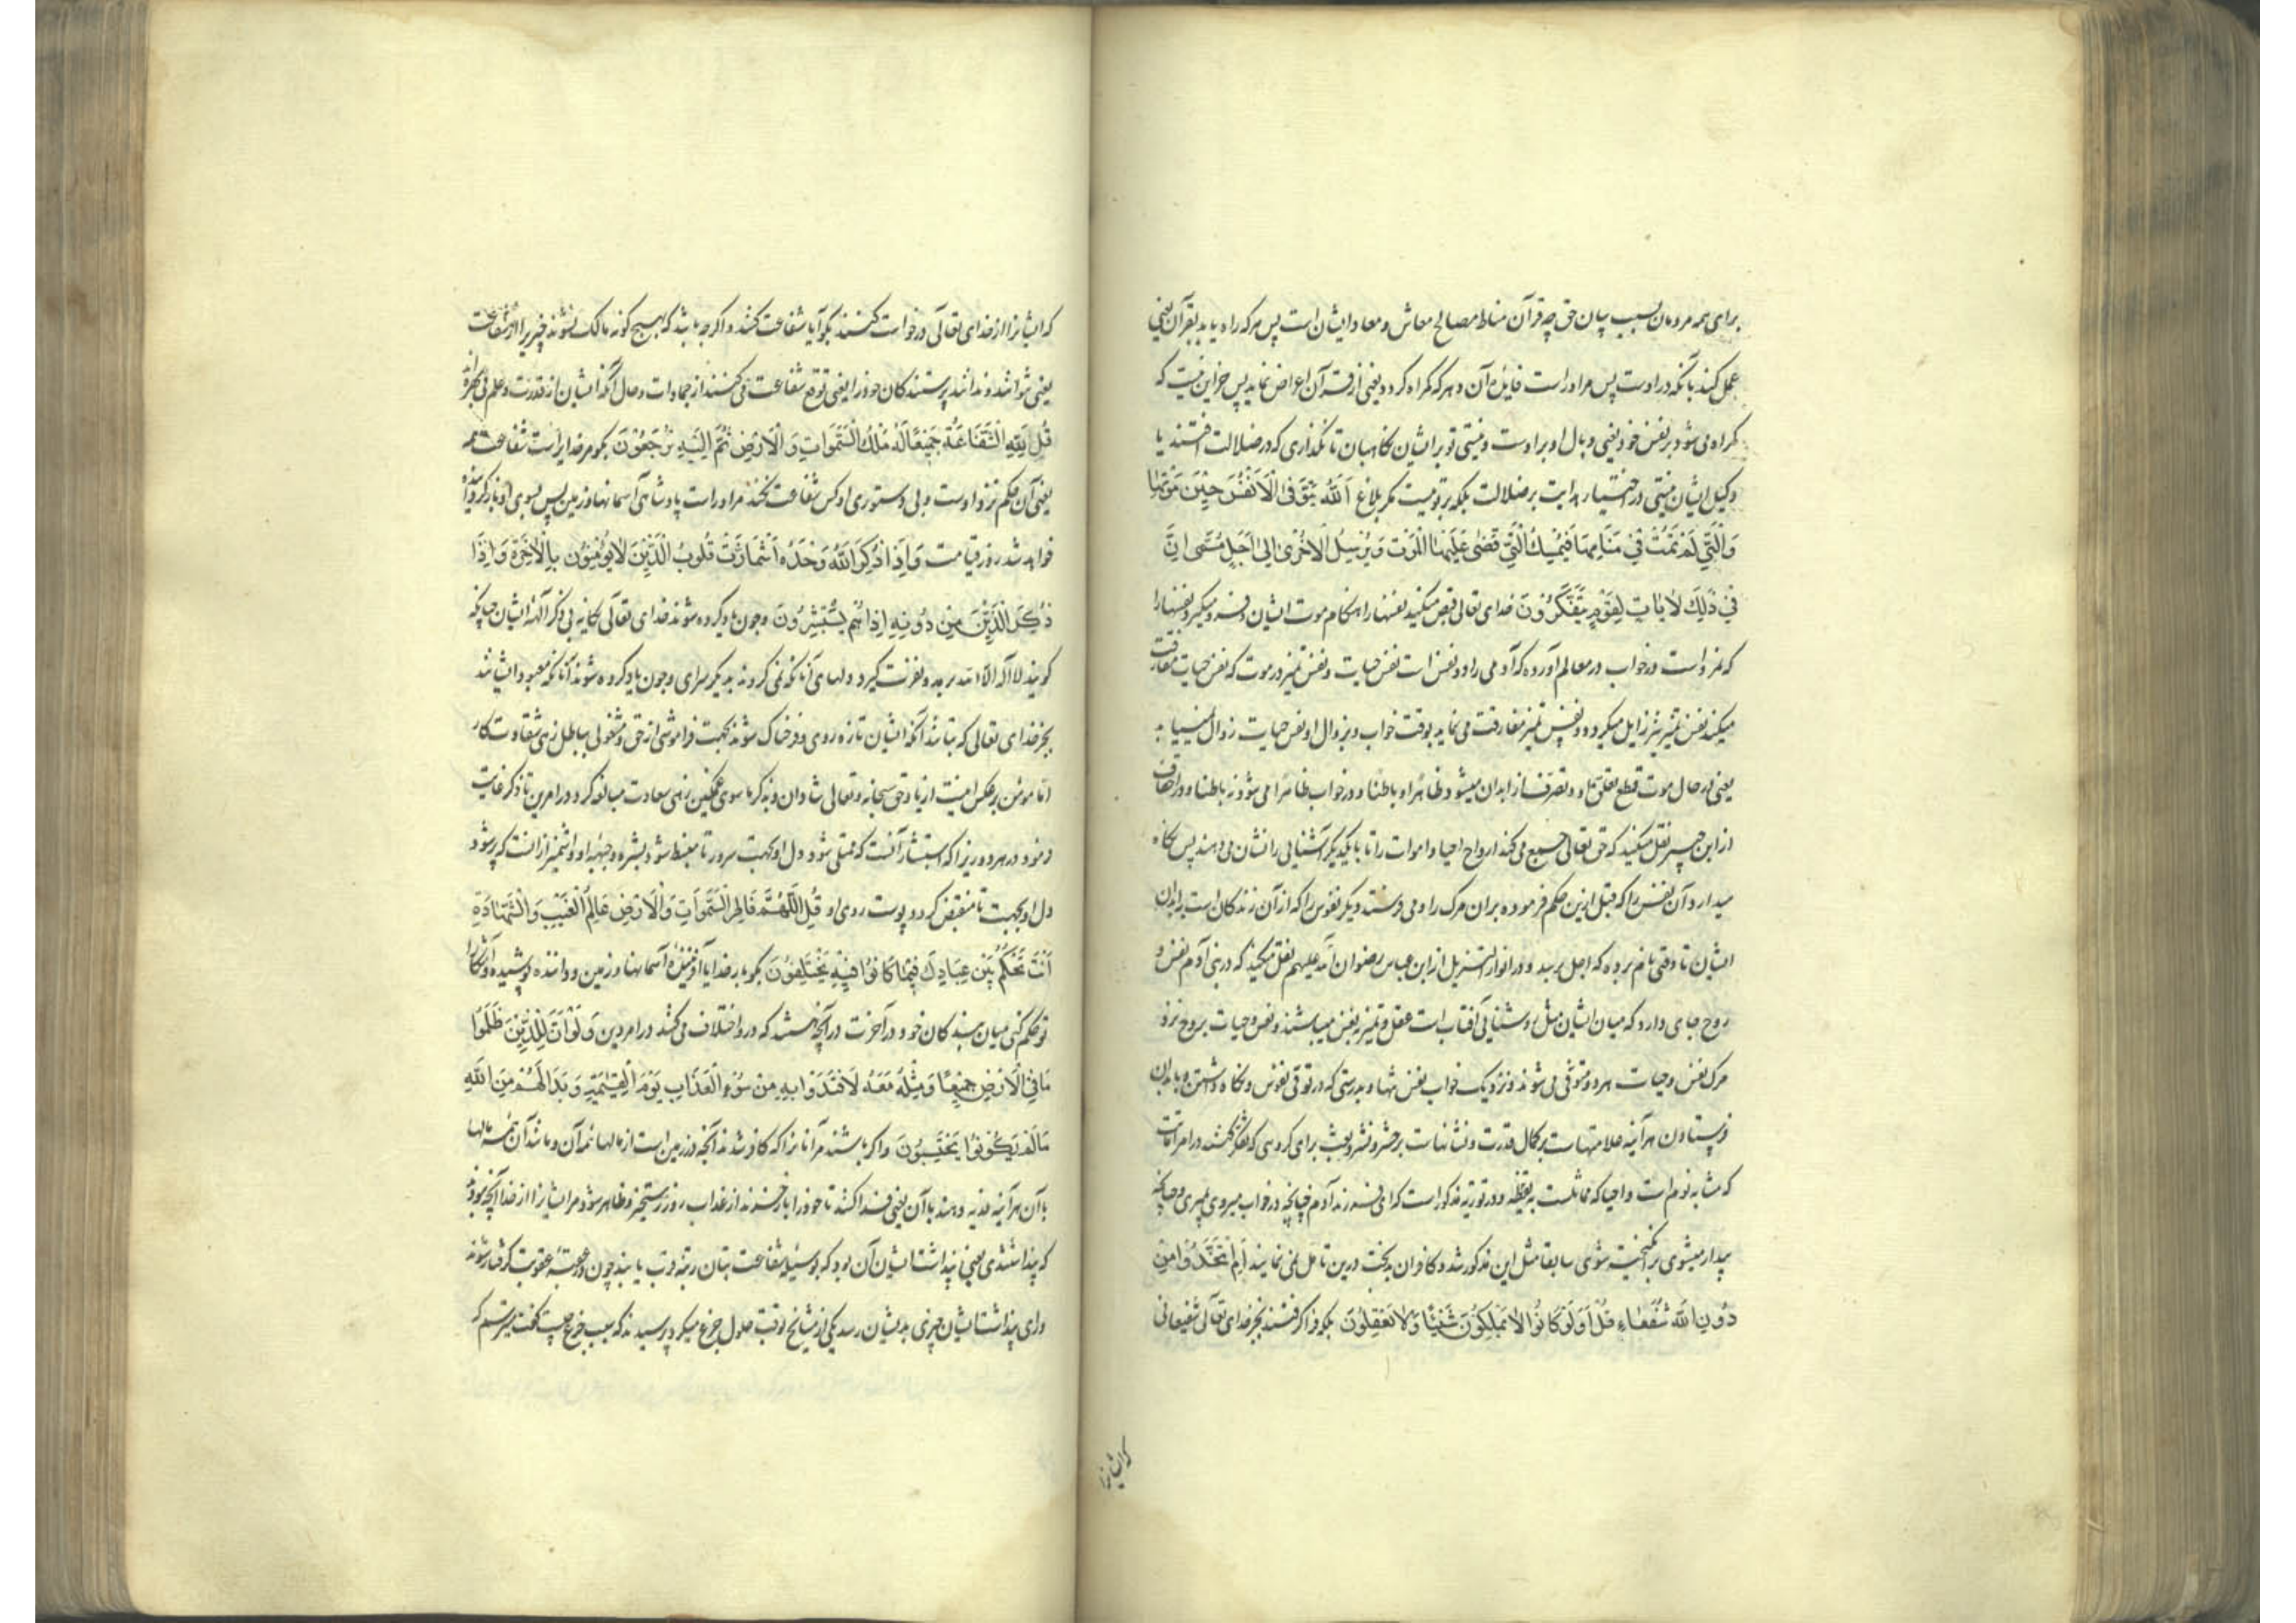 برای همه مردمان بسبب بیان حق چه قرآن مناط مصالح معاش و معاد ایشان است پس هرکه راه یابد بقرآن یعنی
عمل کند بانکه در اوست پس مر اوراست فایدهٔ آن و هرکه گمراه کردد یعنی از قرآن اعراض نماید پس جز این نیست که
گمراه می شود بر نفس خود یعنی وبال او بر اوست و نیستی تو بر ایشان نکاهبان تا نکذاری که در ضلالت افتند یا
وکیل ایشان نیستی در اختیار هدایت بر ضلالت بلکه بر تو نیست مگر بلاغ اَللّٰهُ یَتَوَفَّی الْاَنْفُسَ حِیْنَ مَوْتِهَا
وَالَّتِی لَمْ تَمُتْ فِی مَنَامِهَا فَیُمْسِكُ الَّتِی قَضٰی عَلَیْهَا الْمَوْتَ وَیُرْسِلُ الْاُخْرٰی اِلٰی اَجَلٍ مُسَمًّی اِنَّ
فِی ذٰلِكَ لَاٰیَاتٍ لِقَوْمٍ یَتَفَكَّرُوْنَ خدای تعالی قبض میکند نفسها را هنکام موت ایشان و فرو میکیرد نفسها را
که نمرده است در خواب در معالم آورده که آدمی را دو نفس است نفس حیات و نفس تمیز در موت که نفس حیات مفارقت
میکند نفس تمیز نیز زایل میکردد و نفس تمیز مفارقت می نماید بوقت خواب و بزوال او نفس حیات زوال نمییابد
یعنی در حال موت قطع تعلق و تصرف از ابدان میشود ظاهرا و باطنا و در خواب ظاهرا می شود نه باطنا و در احقاف
از ابن جبیر نقل میکنید که حق تعالی جمع می کند ارواح احیا و اموات را تا با یکدیکر آشنایی را نشان می دهند پس نکاه
میدارد آن نفس را که قبل ازین حکم فرموده بران مرک را و می فرستد دیکر نفوس را که از آن زندکان است بابدان
ایشان تا وقتی نام برده که اجل برسد و در انوار التنزیل از ابن عباس رضوان الله علیهم نقل میکند که در بنی آدم نفس و
روح جای دارد که میان ایشان مثل روشنایی آفتاب است عقل و تمیز بنفس میباشند و نفس و حیات بروح نزد
مرک نفس و حیات هر دو متوفی می شوند و نزدیک خواب نفس تنها و بدرستی که در توفی نفوس و نکاه داشتن و بابدان
فرستادن هر آینه علامتهاست بر کمال قدرت و نشانهاست بر حشر و نشر و بعث برای کروهی که تفکر کنند در امر اماتت
که مشابه نوم است و احیا که مماثلست بیقظه و در توریة مذکور است که ای فرزند آدم چنانچه در خواب میروی میمیری و چنانکه
بیدار میشوی برانکیخته شوی سابقا مثل این مذکور شد و کافران بدبخت درین تامل نمی نمایند اَمِ اتَّخَذُوْا مِنْ
دُوْنِ اللّٰهِ شُفَعَاءَ قُلْ اَوَلَوْ كَانُوْا لَا یَمْلِكُوْنَ شَیْئًا وَلَا یَعْقِلُوْنَ بلکه فرا کرفتند بجز خدای تعالی شفیعانی
که ایشانرا
که ایشانرا از خدای تعالی درخواست کنند بکو آیا شفاعت کنند و اکرچه باشد که بهیچ کونه مالک نشوند چیزیرا از شفاعت
یعنی نتوانند و ندانند پرستندکان خود را یعنی توقع شفاعت می کنند از جمادات و حال آنکه ایشان از قدرت و علم بی بهره اند
قُلْ لِلّٰهِ الشَّفَاعَةُ جَمِیْعًا لَهُ مُلْكُ السَّمٰوَاتِ وَالْاَرْضِ ثُمَّ اِلَیْهِ تُرْجَعُوْنَ بکو مر خدایراست شفاعت همه
یعنی آن حکم نزد اوست و بی دستوری او کس شفاعت نکند مر اوراست پادشاهی آسمانها و زمین پس بسوی او بازکردیده
خواهد شد روز قیامت وَاِذَا ذُكِرَ اللّٰهُ وَحْدَهُ اشْمَاَزَّتْ قُلُوْبُ الَّذِیْنَ لَا یُؤْمِنُوْنَ بِالْاٰخِرَةِ وَاِذَا
ذُكِرَ الَّذِیْنَ مِنْ دُوْنِهِ اِذَا هُمْ یَسْتَبْشِرُوْنَ و چون یاد کرده شوند خدای تعالی یکانه بی ذکر آلهه ایشان چنانکه
کویند لا اله الا الله برمد و نفرت کیرد دلهای آنانکه نمی کروند بدیکر سرای و چون یاد کرده شوند آنانکه معبود ایشانند
بجز خدای تعالی که بتانند آنکه ایشان تازه روی و فرحناک شوند بجهت فراموشی از حق و مشغولی بباطل زهی شقاوت کار
اما مؤمن بر عکس اینست از یاد حق سبحانه و تعالی شادان و بذکر ماسوی غمکین زهی سعادت مبالغه کرد در امرین تا ذکر غایت
نمود در هر دو زیرا که استبشار آنست که ممتلی شود دل او بجهت سرور تا منبسط شود بشره وجهه او و اشمیزاز آنست که پر شود
دل او بجهت تا منقبض کردد پوست روی او قُلِ اللّٰهُمَّ فَاطِرَ السَّمٰوَاتِ وَالْاَرْضِ عَالِمَ الْغَیْبِ وَالشَّهَادَةِ
اَنْتَ تَحْكُمُ بَیْنَ عِبَادِكَ فِیْمَا كَانُوْا فِیْهِ یَخْتَلِفُوْنَ بکو بار خدایا آفریننده آسمانها و زمین و داننده پوشیده و آشکارا
تو حکم کنی میان بندکان خود در آخرت در آنچه هستند که در و اختلاف می کنند در امر دین وَلَوْ اَنَّ لِلَّذِیْنَ ظَلَمُوْا
مَا فِی الْاَرْضِ جَمِیْعًا وَمِثْلَهُ مَعَهُ لَافْتَدَوْا بِهِ مِنْ سُوْءِ الْعَذَابِ یَوْمَ الْقِیٰمَةِ وَبَدَا لَهُمْ مِنَ اللّٰهِ
مَا لَمْ یَكُوْنُوْا یَحْتَسِبُوْنَ و اکر باشند مر آنانرا که کافر شدند آنچه در زمین است از مالها همه آن و مانند آن همه مالها
با آن هر آینه فدیه دهند با آن یعنی فدا کنند تا خود را باز خرند از عذاب روز رستخیز و ظاهر شود مر ایشانرا از خدا آنچه بودند
که پنداشتندی یعنی پنداشت ایشان آن بود که بوسیله شفاعت بتان رتبهٔ قرب یابند چون عقوبت کرفتار شوند
ورای پنداشت ایشان چیزی بدیشان رسد یکی از مشایخ وقت حلول جزع میکرد پرسیدند که سبب جزع چیست گفت میترسم که